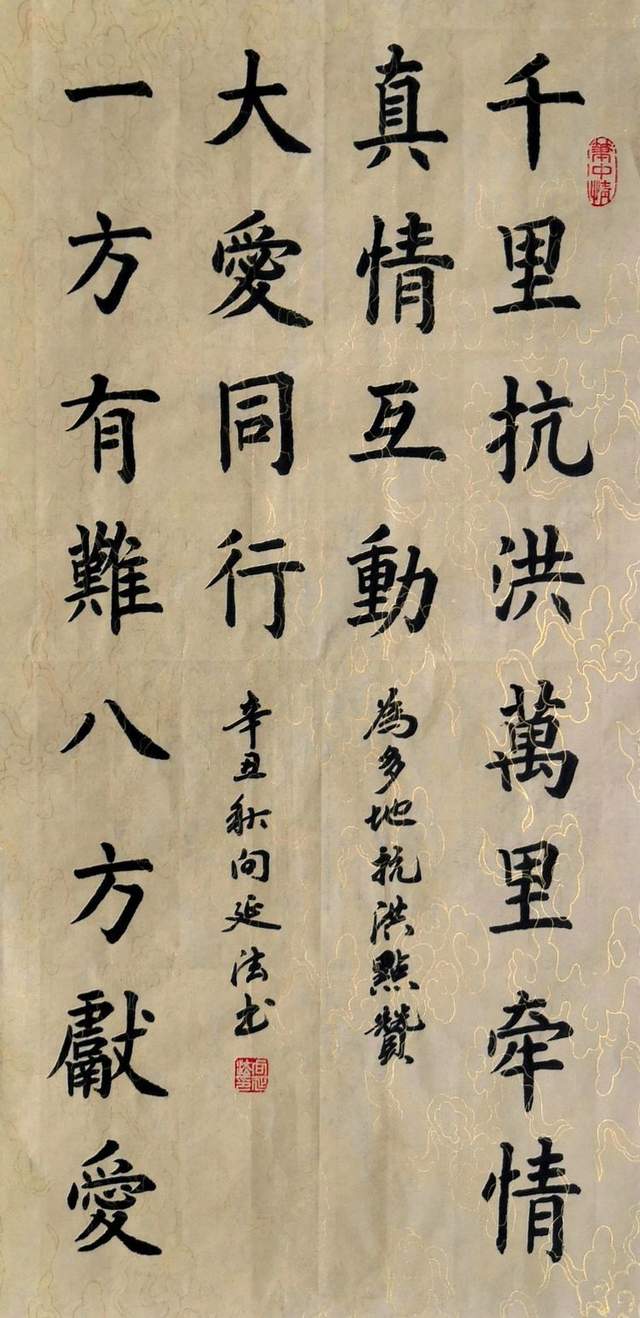 筆中情
千里抗洪萬里牵情
真情互動
為多地抗洪點贊
一方有難八方獻愛
大愛同行
辛丑秋向延法书